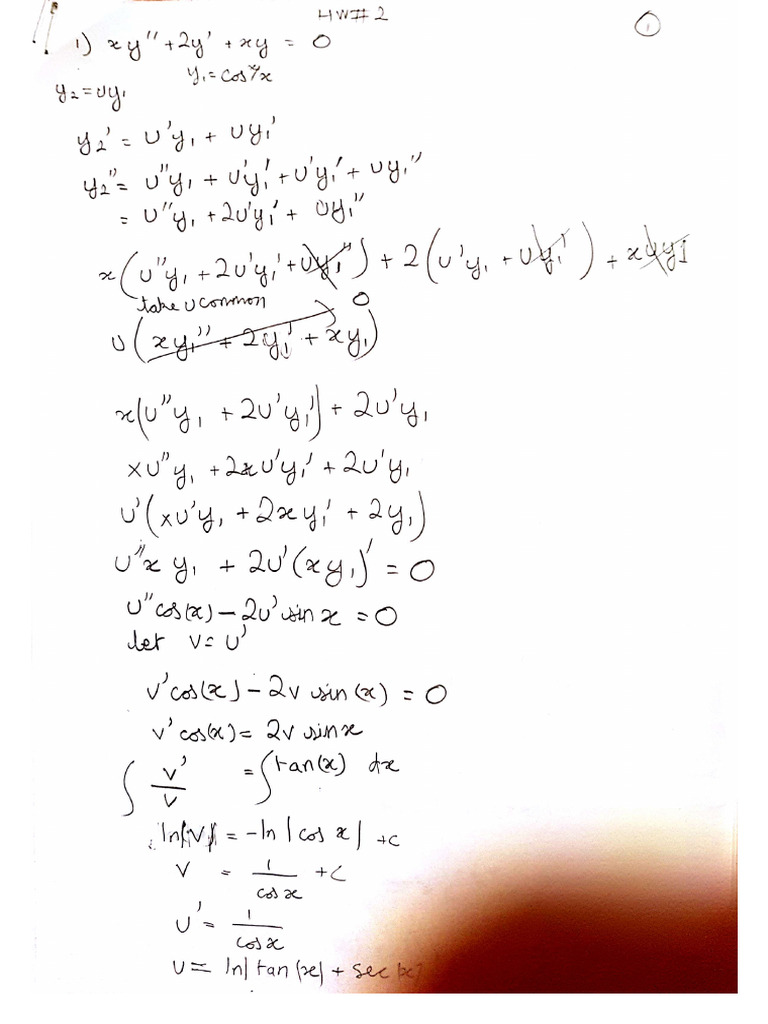 HW#2
①
1) xy'' + 2y' + xy = 0
y₁ = cosx/x
y₂ = uy₁
y₂' = u'y₁ + uy₁'
y₂'' = u''y₁ + u'y₁' + u'y₁' + uy₁''
= u''y₁ + 2u'y₁' + uy₁''
x(u''y₁ + 2u'y₁' + uy₁'') + 2(u'y₁ + uy₁') + xuy₁
take u common
0
u(xy₁'' + 2y₁' + xy₁)
x(u''y₁ + 2u'y₁') + 2u'y₁
xu''y₁ + 2xu'y₁' + 2u'y₁
u'(xu'y₁ + 2xy₁' + 2y₁)
u''x y₁ + 2u'(xy₁)' = 0
u''cos(x) - 2u' sin x = 0
let v = u'
v'cos(x) - 2v sin(x) = 0
v'cos(x) = 2v sinx
∫ v'/v = ∫tan(x) dx
ln|v| = -ln|cos x| + c
v = 1/cosx + c
u' = 1/cosx
u = ln|tan(x) + sec(x)